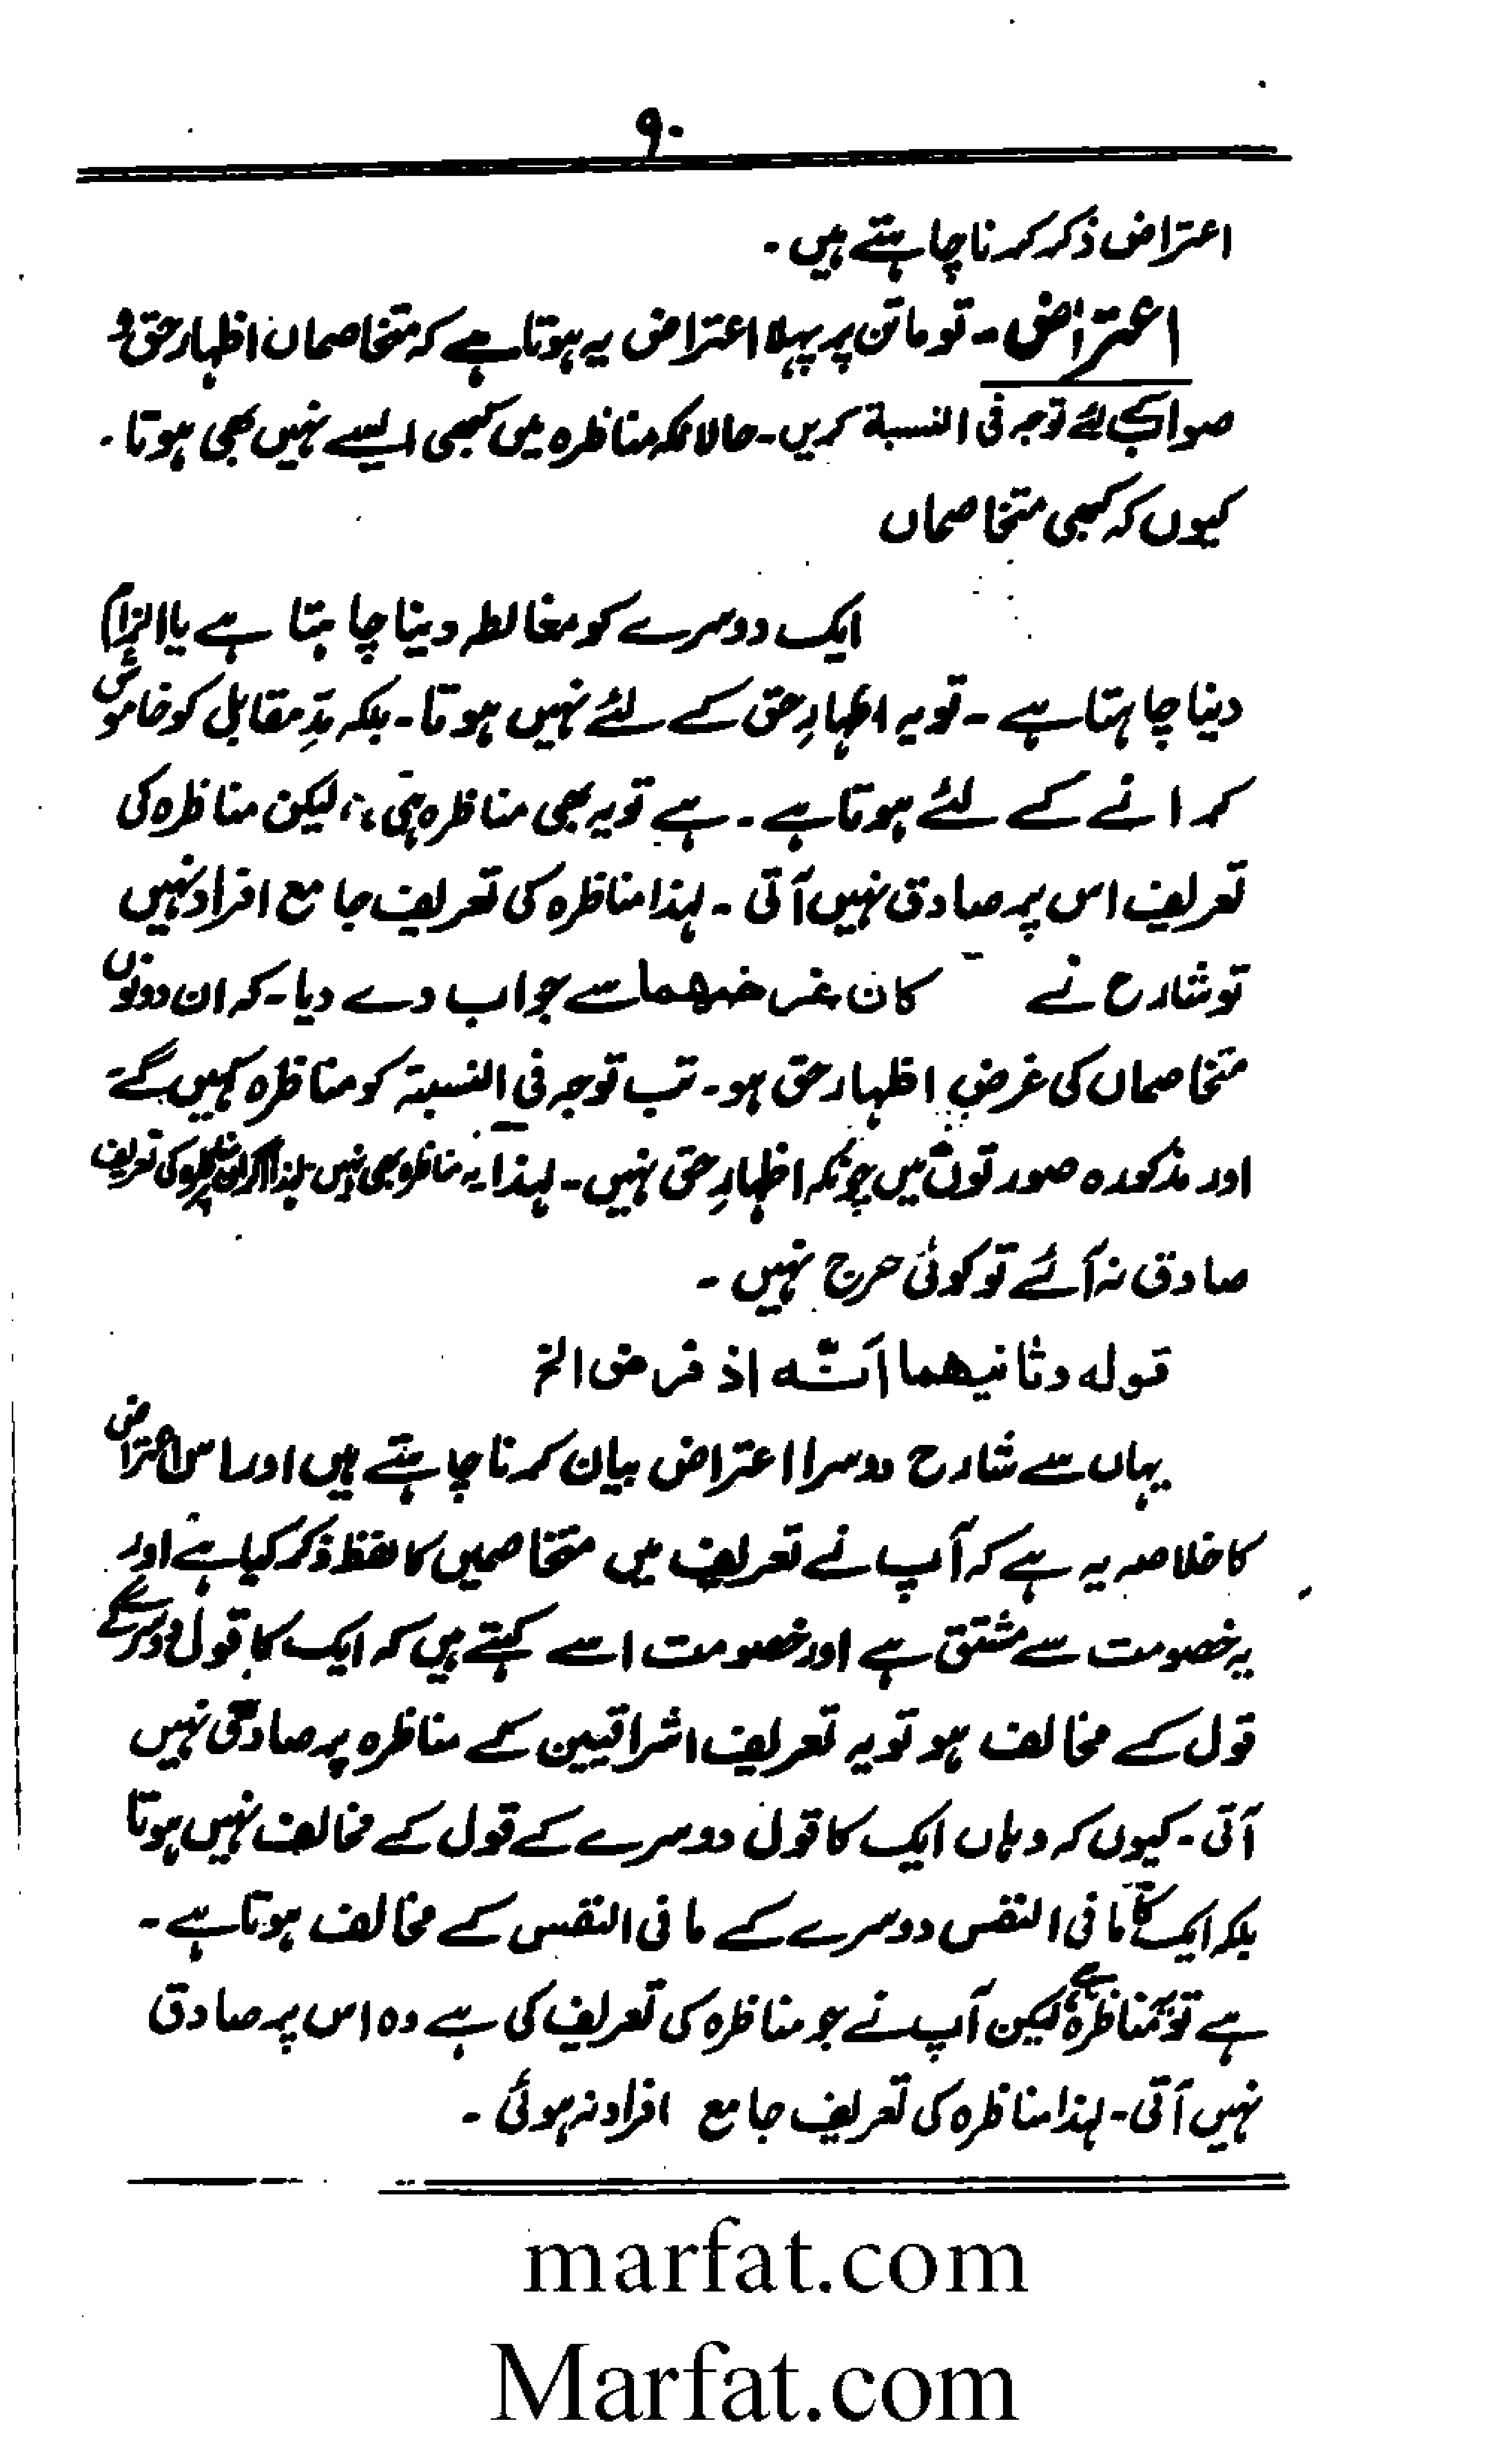 ۹۰
اعتراض ذکر کرنا چاہتے ہیں ۔
اعتراض ۔ تو ماتن پر پہلا اعتراض یہ ہوتا ہے کہ متخاصمان اظہار حق و
صواب کے لئے توجہ فی النسبۃ کریں ۔ حالانکہ مناظرہ میں کبھی ایسے نہیں بھی ہوتا ۔
کیوں کہ کبھی متخاصمان
ایک دوسرے کو مغالطہ دینا چاہتا ہے یا الزام
دینا چاہتا ہے ۔ تو یہ اظہارِ حق کے لئے نہیں ہوتا ۔ بلکہ مدِ مقابل کو خاموش
کرانے کے لئے ہوتا ہے ۔ ہے تو یہ بھی مناظرہ ہی، لیکن مناظرہ کی
تعریف اس پر صادق نہیں آتی ۔ لہذا مناظرہ کی تعریف جامع افراد نہیں
تو شارح نے کان غرضہما سے جواب دے دیا ۔ کہ ان دونوں
متخاصماں کی غرض اظہار حق ہو ۔ تب توجہ فی النسبۃ کو مناظرہ کہیں گے
اور مذکورہ صورتوں میں چونکہ اظہارِ حق نہیں ۔ لہذا یہ مناظرہ بھی نہیں لہذا اگر ان پر کی تعریف
صادق نہ آئے تو کوئی حرج نہیں ۔
قولہ وثانیھما أنّہ اذ فرض الخ
یہاں سے شارح دوسرا اعتراض بیان کرنا چاہتے ہیں اور اس اعتراض
کا خلاصہ یہ ہے کہ آپ نے تعریف میں متخاصمیں کا لفظ ذکر کیا ہے اور
یہ خصومت سے مشتق ہے اور خصومت اسے کہتے ہیں کہ ایک کا قول دوسرے کے
قول کے مخالف ہو تو یہ تعریف اشراقیین کے مناظرہ پر صادق نہیں
آتی ۔ کیوں کہ وہاں ایک کا قول دوسرے کے قول کے مخالف نہیں ہوتا
بلکہ ایک کا مافی النفس دوسرے کے مافی النفس کے مخالف ہوتا ہے ۔
ہے تو یہ مناظرہ لیکن آپ نے جو مناظرہ کی تعریف کی ہے وہ اس پر صادق
نہیں آتی ۔ لہذا مناظرہ کی تعریف جامع افراد نہ ہوئی ۔
marfat.com
Marfat.com